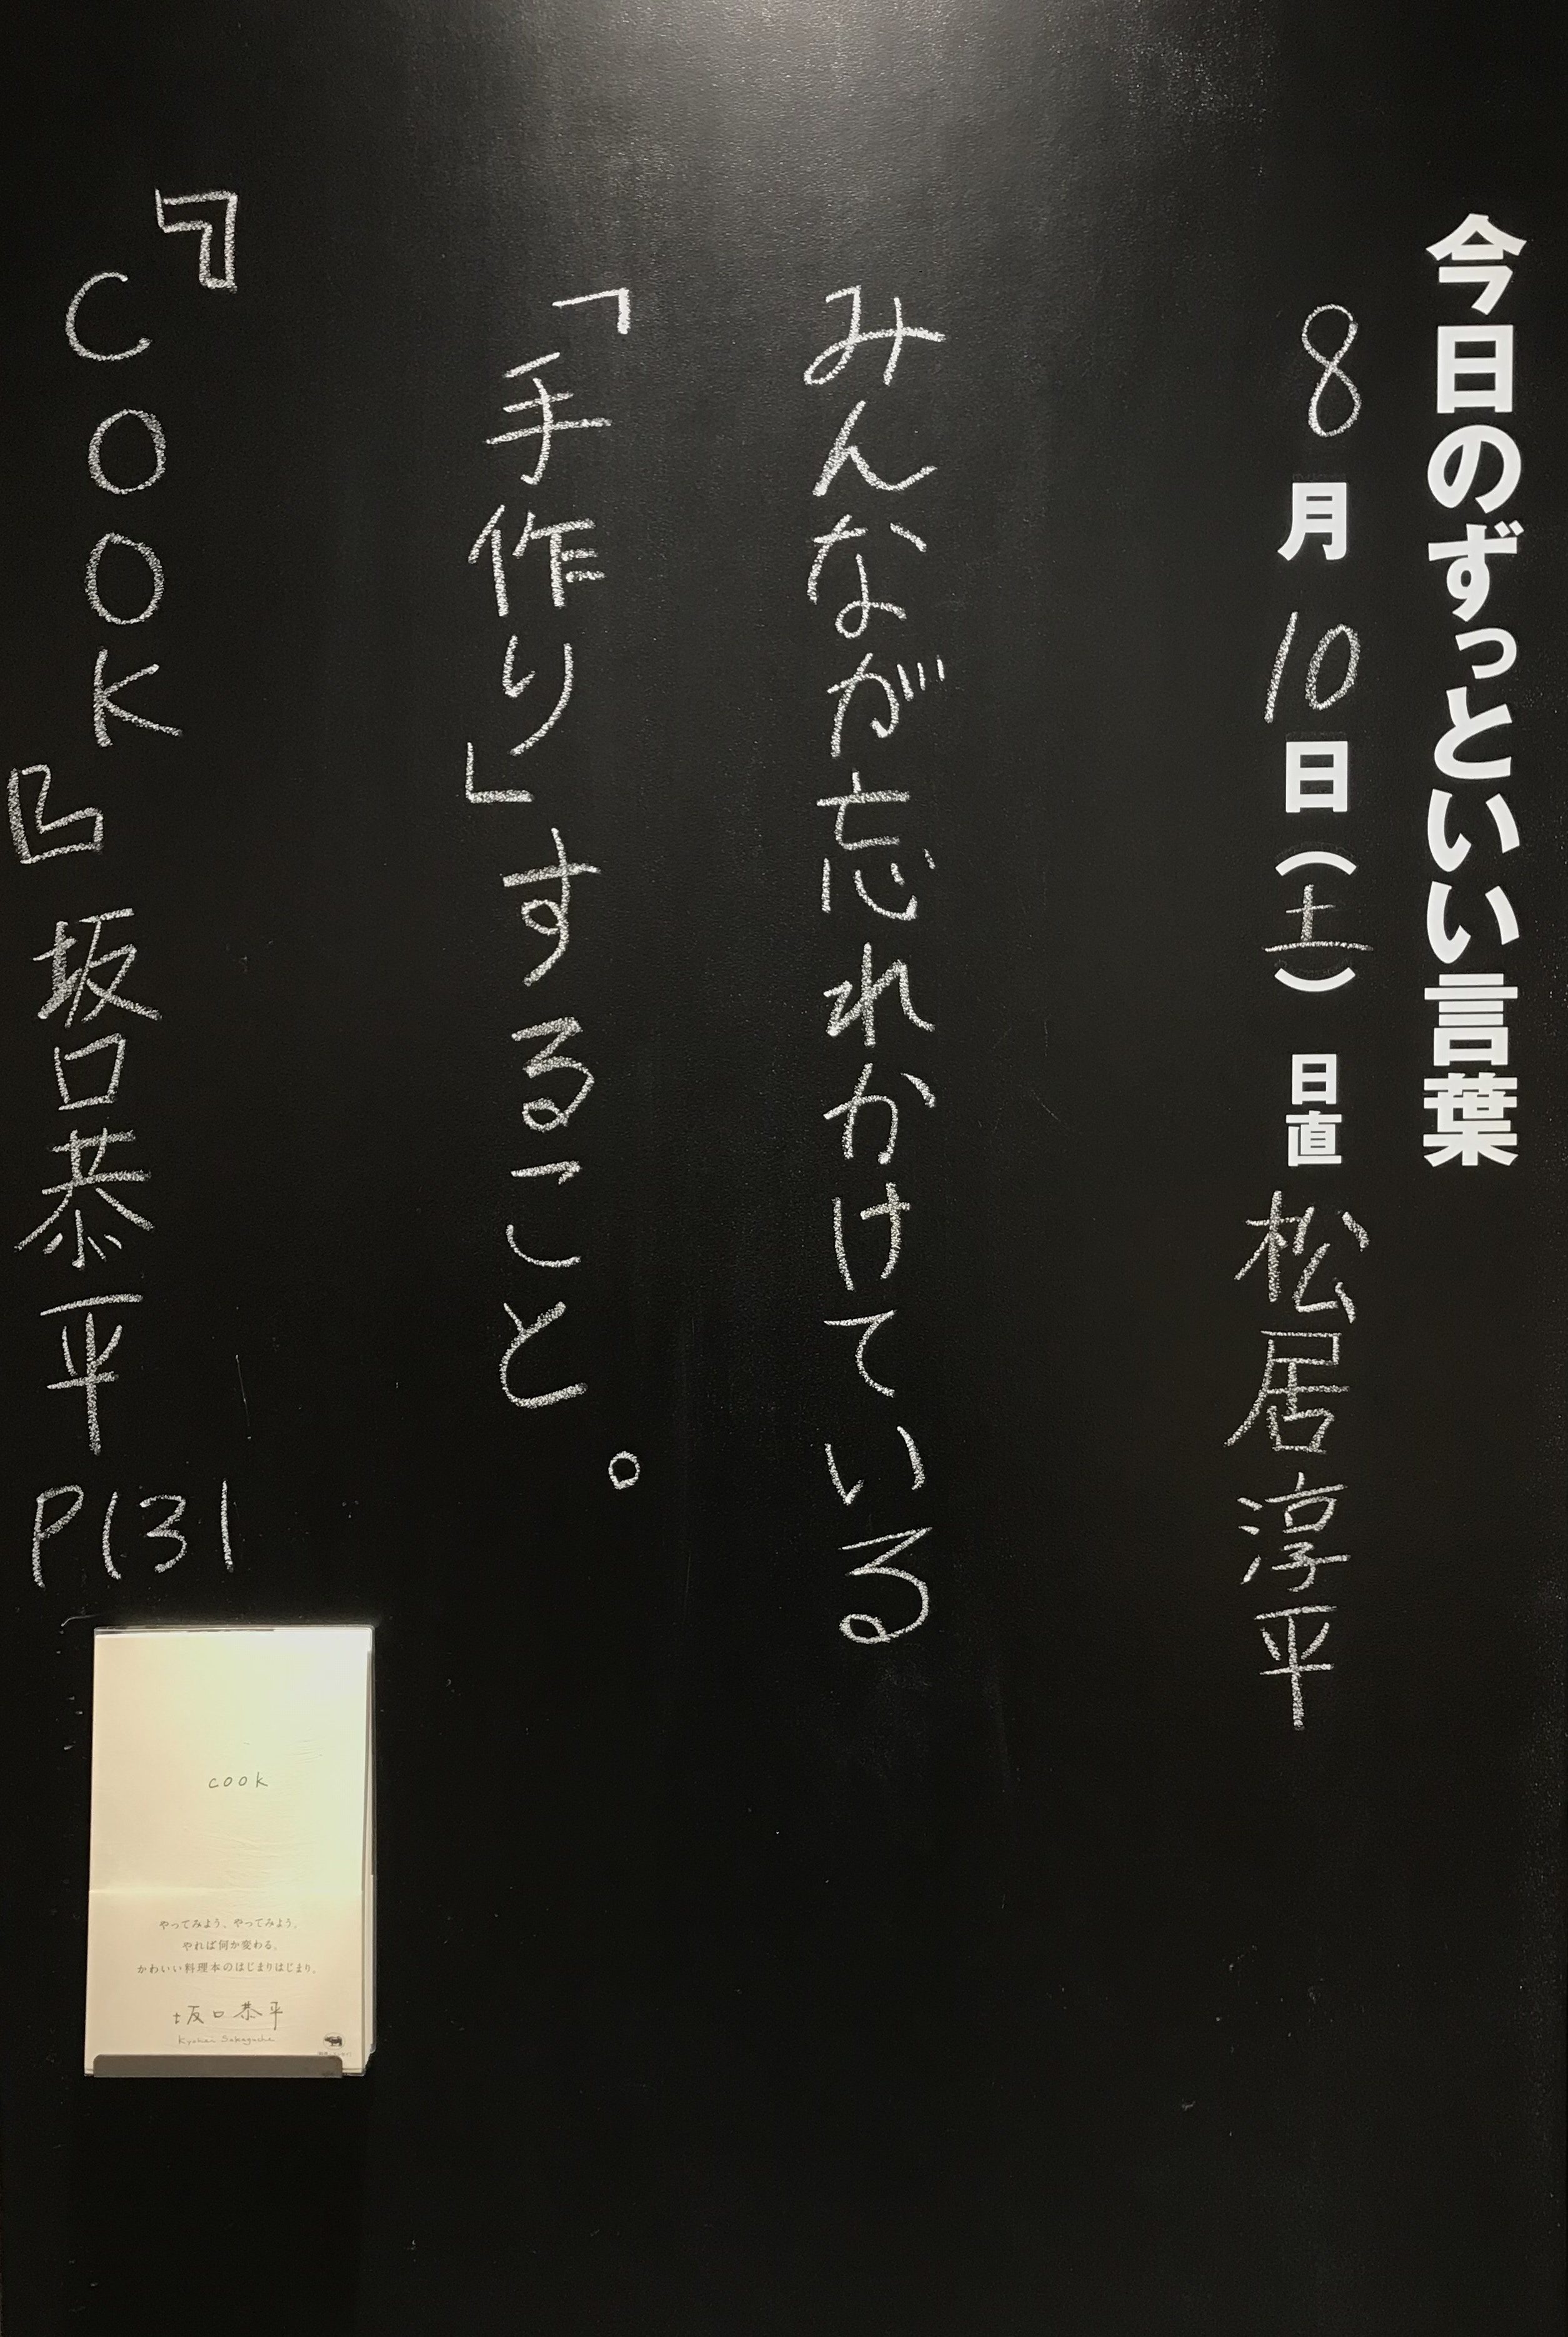 今日のずっといい言葉
8月10日(土) 日直 松居淳平
みんなが忘れかけている
「手作り」すること。
『COOK』坂口恭平 P131
cook
やってみよう、やってみよう。
やれば何か変わる。
かわいい料理本のはじまりはじまり。
坂口恭平
Kyohei Sakaguchi